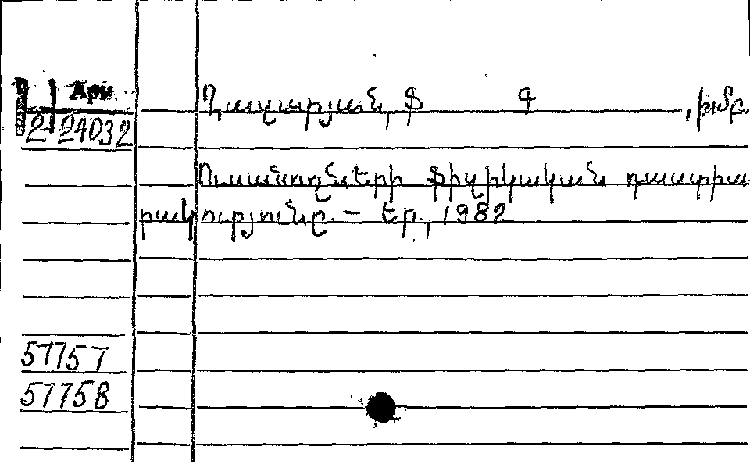 Արմ
2 24032
Ղազարյան, Ֆ Գ , խմբ.
Ուսանողների ֆիզիկական դաստիա
րակությունը. – Եր., 1982
57757
57758